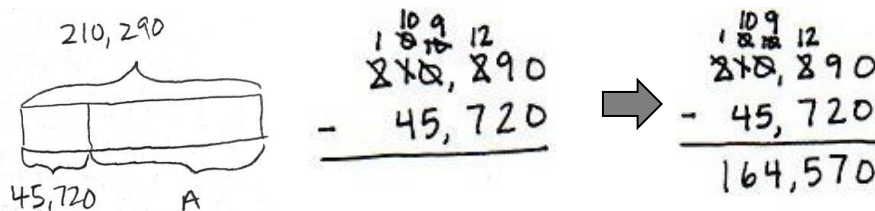 210,290
45,720
A
10 9
1 0 10 12
210,290
- 45,720
10 9
1 0 10 12
210,290
- 45,720
164,570